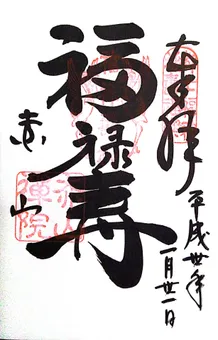 奉拝
平成丗年
一月廿一日
福禄寿
赤山
赤山
禪院